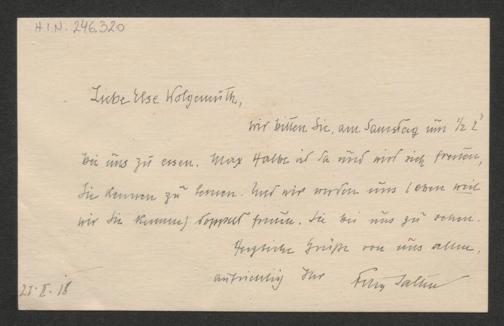 H.I.N. 246.320
Liebe Else Wolgemuth,
wir bitten Sie, am Samstag um 1/2 2
bei uns zu essen. Max Halbe ist da und wird sich freuen,
Sie kennen zu lernen. Und wir werden uns (eben weil
wir Sie kennen) doppelt freuen, Sie bei uns zu sehen.
Herzliche Grüße von uns allen,
aufrichtig Ihr Felix Salten